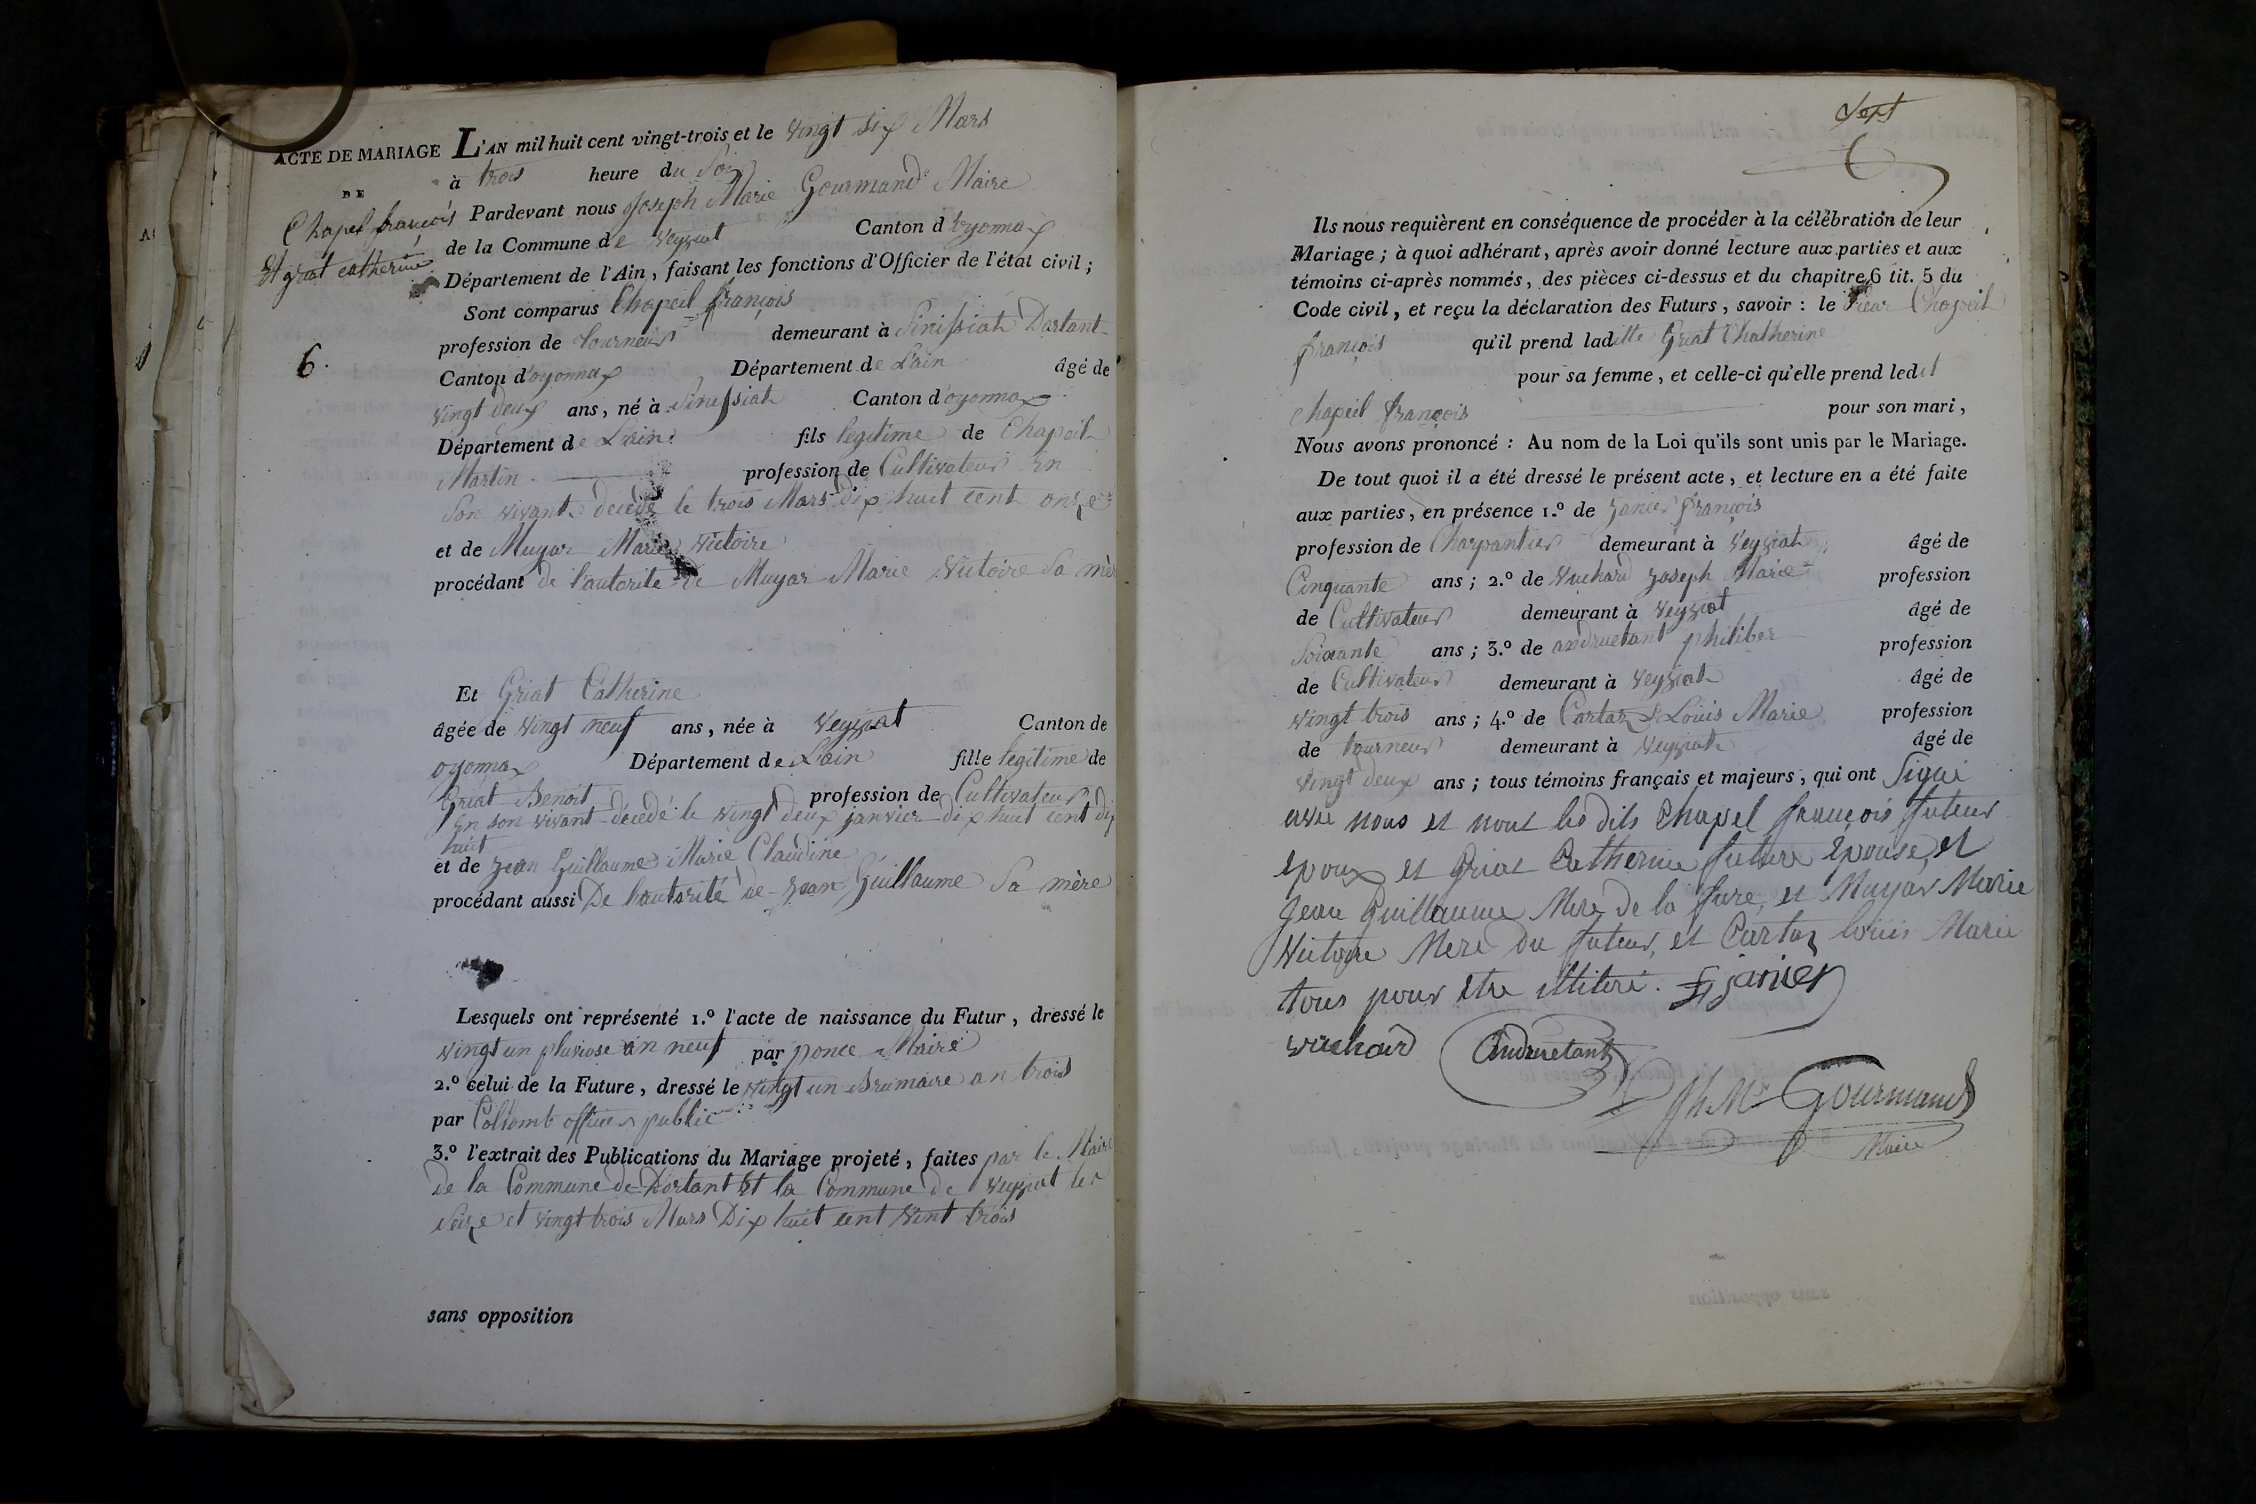 ACTE DE MARIAGE
DE
Chapel françois
Et griat catherine
6.
L'AN mil huit cent vingt-trois et le vingt six Mars
à trois heure du Soir
Pardevant nous Joseph Marie Gourmand Maire
de la Commune de Veyziat Canton d'oyonnax
Département de l'Ain, faisant les fonctions d'Officier de l'état civil;
Sont comparus Chapeil françois
profession de tourneur demeurant à Sinissiat Dortant
Canton d'oyonnax Département de L'ain âgé de
vingt deux ans, né à Sinissiat Canton d'oyonnax
Département de L'ain fils legitime de Chapeil
Martin profession de Cultivateur En
Son vivant décédé le trois Mars Dix huit cent onze
et de Muyar Marie Victoire
procédant de l'autorité de Muyar Marie Victoire Sa mère
Et Griat Catherine
âgée de vingt neuf ans, née à Veyziat Canton de
oyonnax Département de L'ain fille legitime de
Griat Benoit profession de Cultivateur
En son vivant décédé le vingt deux janvier dix huit cent dix
huit
et de Jean Guillaume Marie Claudine
procédant aussi De l'autorité de Jean Guillaume Sa mère
Lesquels ont représenté 1.º l'acte de naissance du Futur, dressé le
vingt un pluviose an neuf par ponce Maire
2.º celui de la Future, dressé le vingt un Brumaire an trois
par Collomb officier public
3.º l'extrait des Publications du Mariage projeté, faites par le Maire
De la Commune de Dortant Et la Commune de Veyziat les
Seize et vingt trois Mars Dix huit cent vint trois
sans opposition
Sept
Ils nous requièrent en conséquence de procéder à la célébration de leur
Mariage; à quoi adhérant, après avoir donné lecture aux parties et aux
témoins ci-après nommés, des pièces ci-dessus et du chapitre 6 tit. 5 du
Code civil, et reçu la déclaration des Futurs, savoir: le Sieur Chapeil
françois qu'il prend ladite Griat Chatherine
pour sa femme, et celle-ci qu'elle prend ledit
Chapeil françois pour son mari,
Nous avons prononcé: Au nom de la Loi qu'ils sont unis par le Mariage.
De tout quoi il a été dressé le présent acte, et lecture en a été faite
aux parties, en présence 1.º de Janier françois
profession de Charpantier demeurant à Veyziat âgé de
Cinquante ans; 2.º de Vuchard Joseph Marie profession
de Cultivateur demeurant à Veyziat âgé de
Soixante ans; 3.º de andruetant philiber profession
de Cultivateur demeurant à Veyziat âgé de
vingt trois ans; 4.º de Cartaz Louis Marie profession
de tourneur demeurant à Veyziat âgé de
vingt deux ans; tous témoins français et majeurs, qui ont Signé
avec nous et nont les dits Chapel françois futeur
époux et Griat Catherine future épouse, et
Jean Guillaume Mere de la fure, et Muyar Marie
Victoire Mere du futeur, et Cartaz louis Marie
tous pour etre illiteré. f janier
vuchard Andruetant
Jh Mie Gourmand
Maire